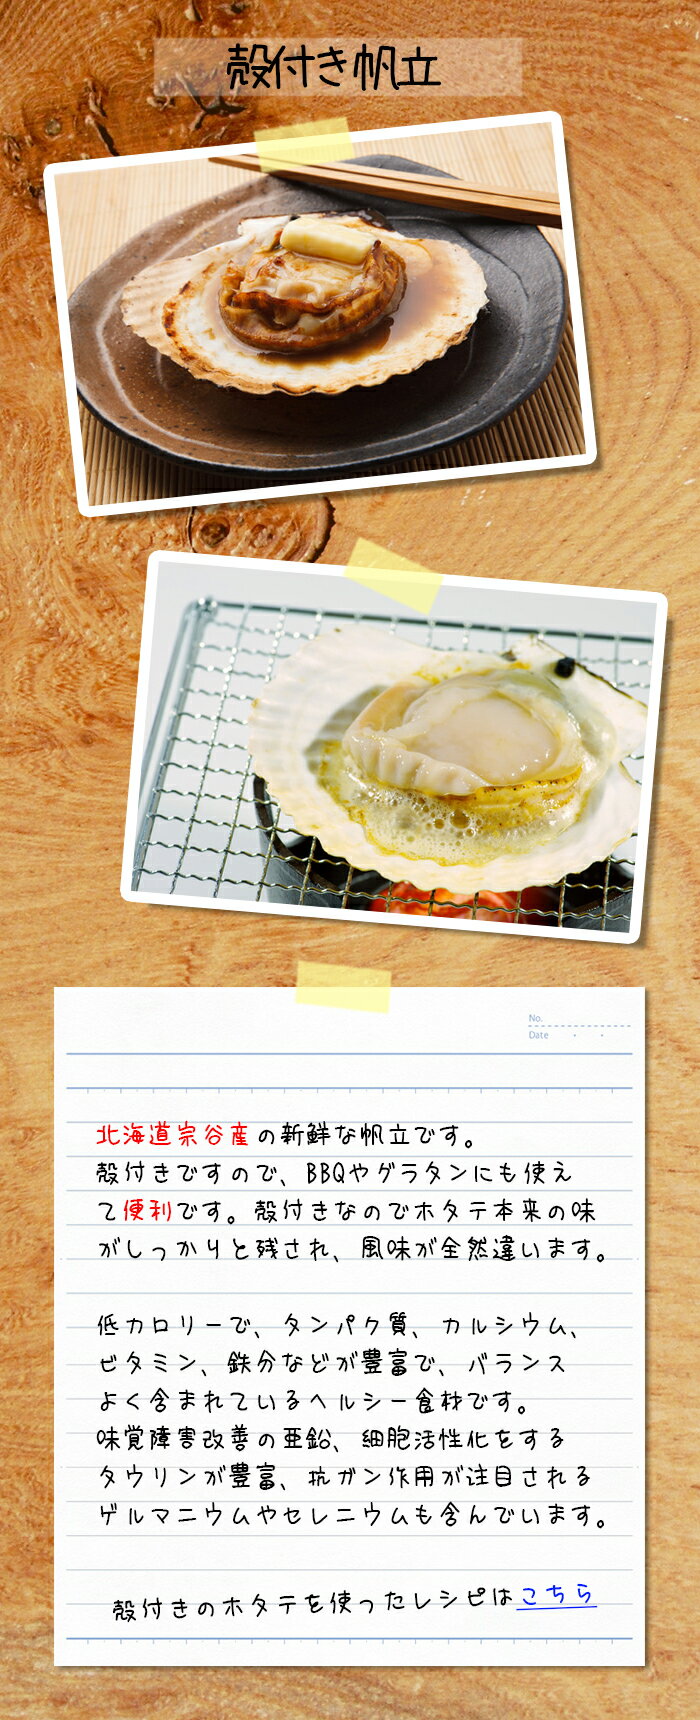 殻付き帆立
No.
Date
北海道宗谷産の新鮮な帆立です。
殻付きですので、BBQやグラタンにも使え
て便利です。殻付きなのでホタテ本来の味
がしっかりと残され、風味が全然違います。
低カロリーで、タンパク質、カルシウム、
ビタミン、鉄分などが豊富で、バランス
よく含まれているヘルシー食材です。
味覚障害改善の亜鉛、細胞活性化をする
タウリンが豊富、抗ガン作用が注目される
ゲルマニウムやセレニウムも含んでいます。
殻付きのホタテを使ったレシピはこちら